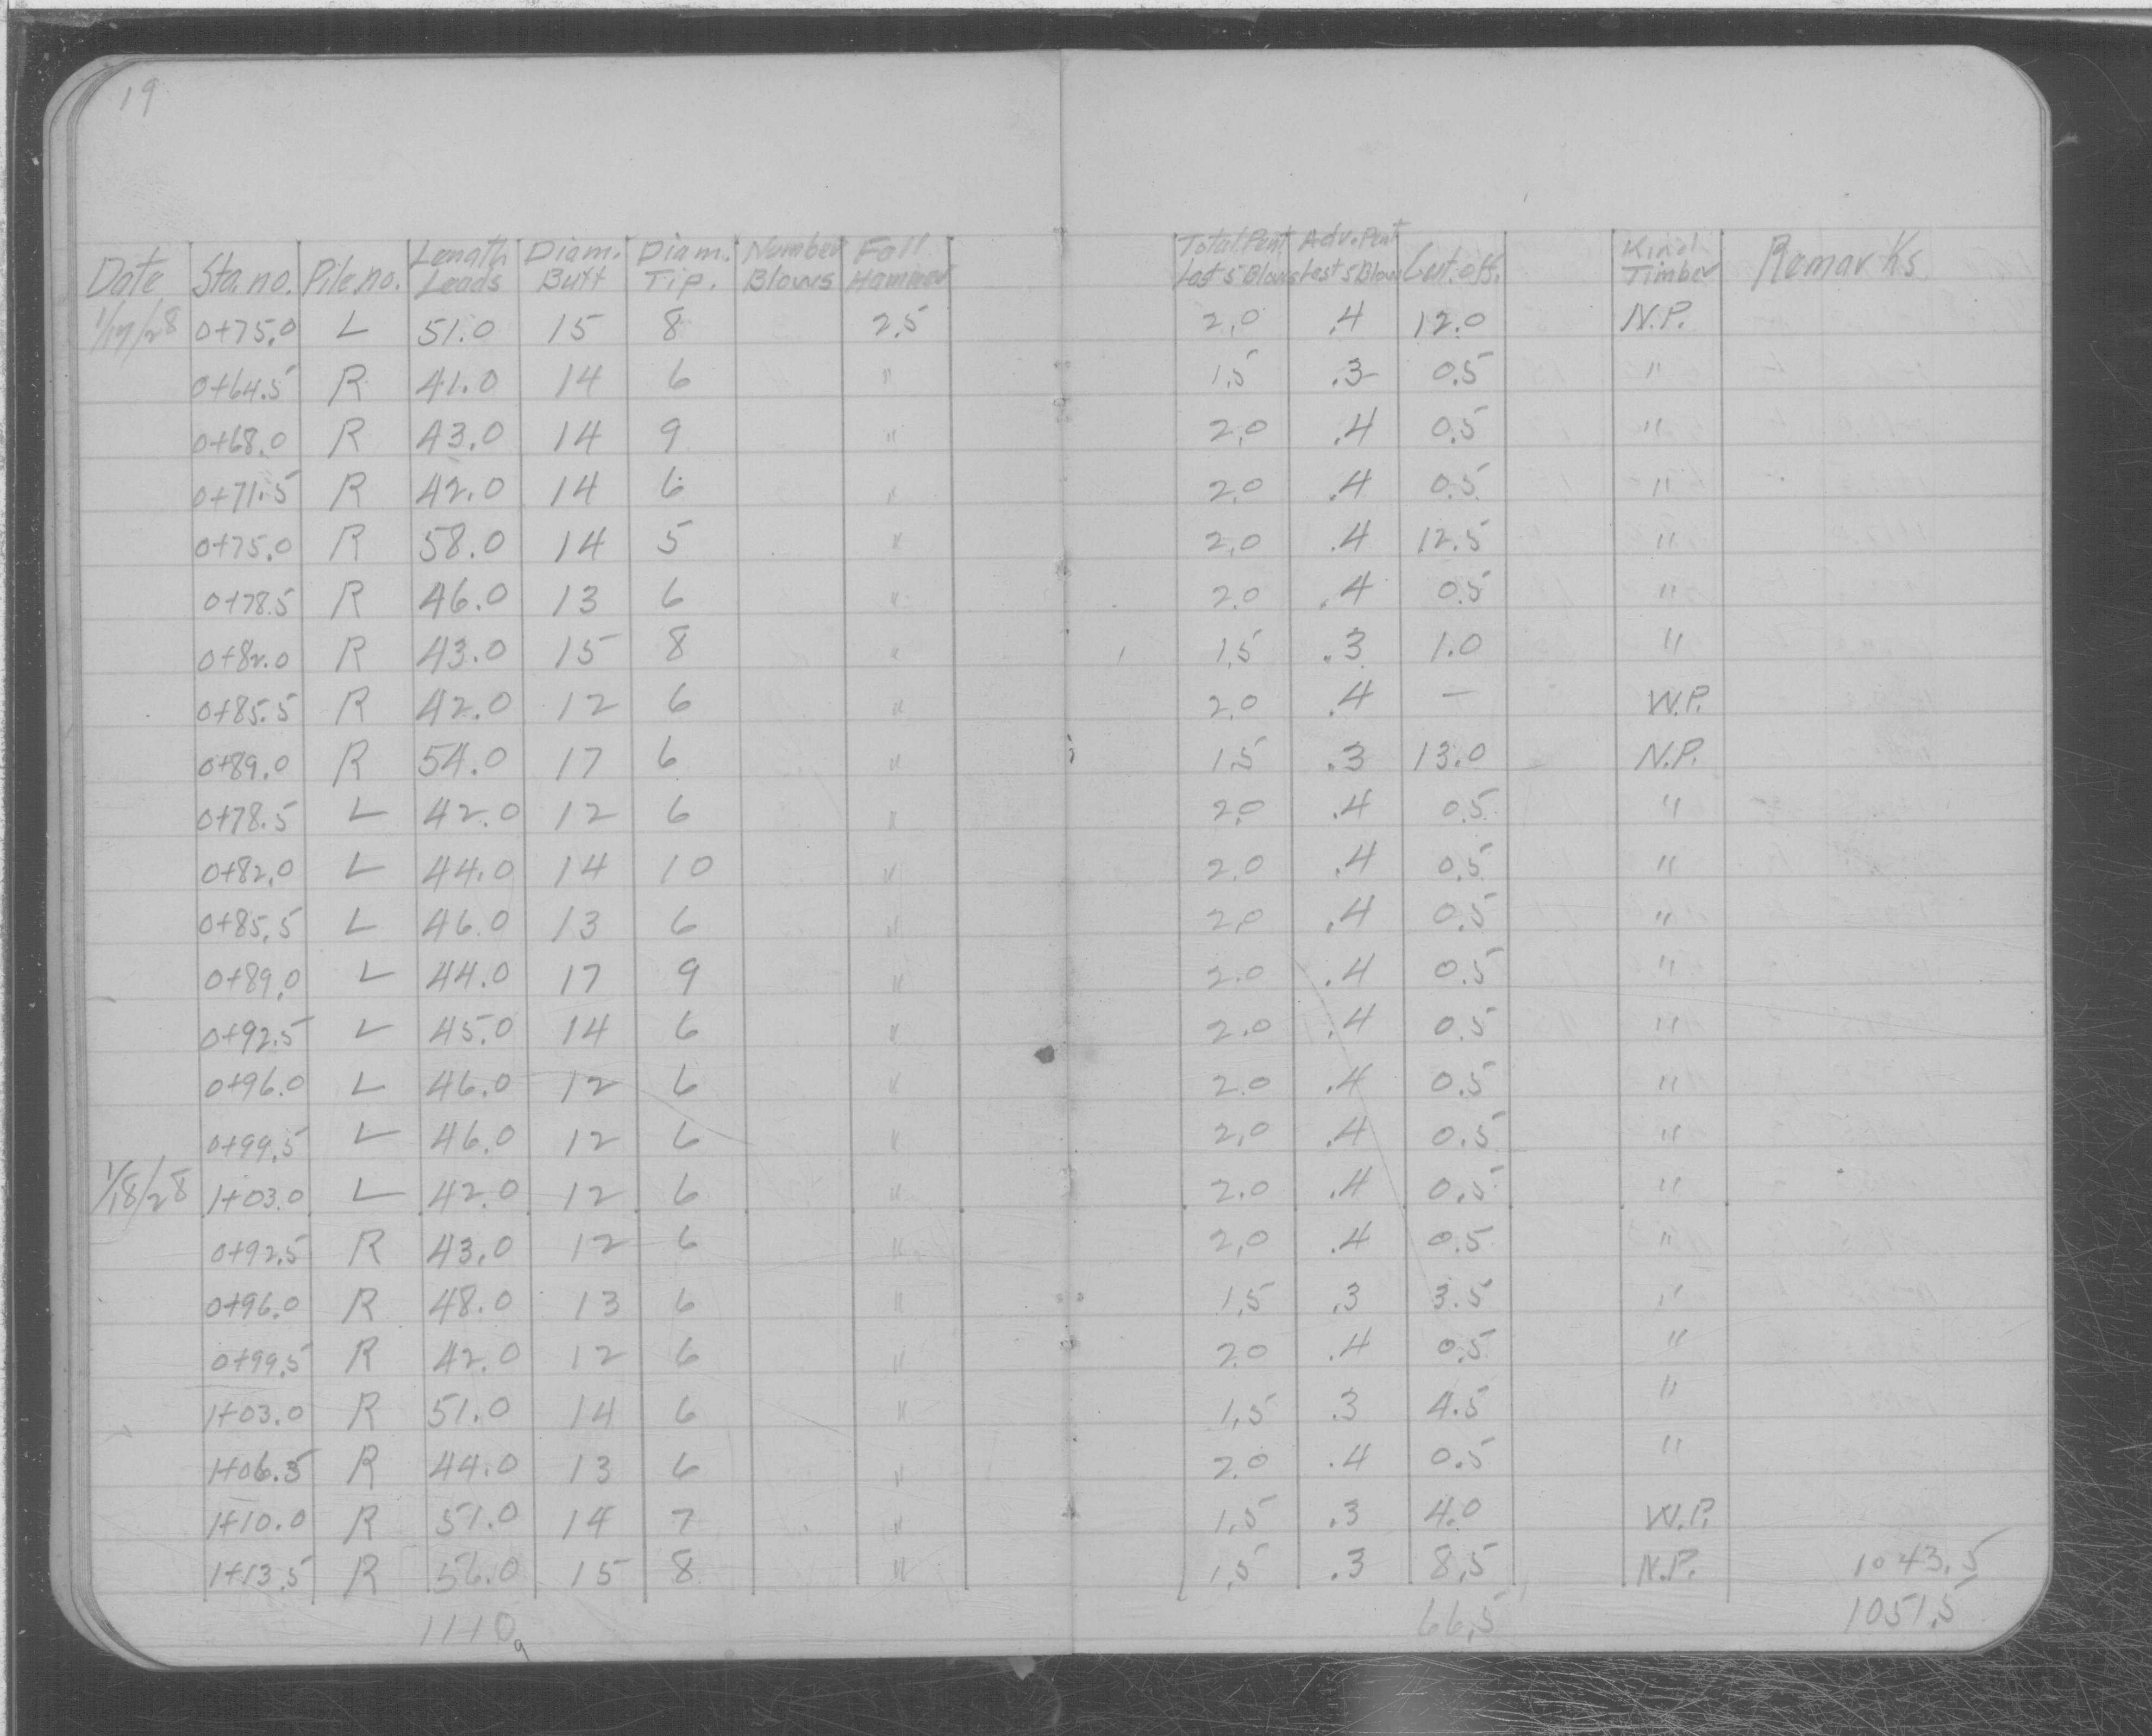 19
Date Sta no. Pile no. Length Leads Diam. Butt Diam. Tip. Number Blows Fall Hammer Total Pent Last 5 Blows Adv. Pent Last 5 Blow Cut. off. Kind Timber Remarks
1/17/28 0+75.0 L 51.0 15 8 2.5 2.0 .4 12.0 N.P.
0+64.5 R 41.0 14 6 " 1.5 .3 0.5 "
0+68.0 R 43.0 14 9 " 2.0 .4 0.5 "
0+71.5 R 42.0 14 6 " 2.0 .4 0.5 "
0+75.0 R 58.0 14 5 " 2.0 .4 12.5 "
0+78.5 R 46.0 13 6 " 2.0 .4 0.5 "
0+82.0 R 43.0 15 8 " 1.5 .3 1.0 "
0+85.5 R 42.0 12 6 " 2.0 .4 — W.P.
0+89.0 R 54.0 17 6 " 1.5 .3 13.0 N.P.
0+78.5 L 42.0 12 6 " 2.0 .4 0.5 "
0+82.0 L 44.0 14 10 " 2.0 .4 0.5 "
0+85.5 L 46.0 13 6 " 2.0 .4 0.5 "
0+89.0 L 44.0 17 9 " 2.0 .4 0.5 "
0+92.5 L 45.0 14 6 " 2.0 .4 0.5 "
0+96.0 L 46.0 12 6 " 2.0 .4 0.5 "
0+99.5 L 46.0 12 6 " 2.0 .4 0.5 "
1/18/28 1+03.0 L 42.0 12 6 " 2.0 .4 0.5 "
0+92.5 R 43.0 12 6 " 2.0 .4 0.5 "
0+96.0 R 48.0 13 6 " 1.5 .3 3.5 "
0+99.5 R 42.0 12 6 " 2.0 .4 0.5 "
1+03.0 R 51.0 14 6 " 1.5 .3 4.5 "
1+06.5 R 44.0 13 6 " 2.0 .4 0.5 "
1+10.0 R 51.0 14 7 " 1.5 .3 4.0 W.P.
1+13.5 R 56.0 15 8 " 1.5 .3 8.5 N.P. 1043.5
1110 66.5 1051.5